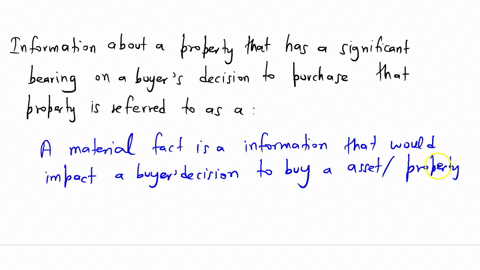 Information about a property that has a significant
bearing on a buyer's decision to purchase that
property is referred to as a :
A material fact is a information that would
impact a buyer's decision to buy a asset/ property